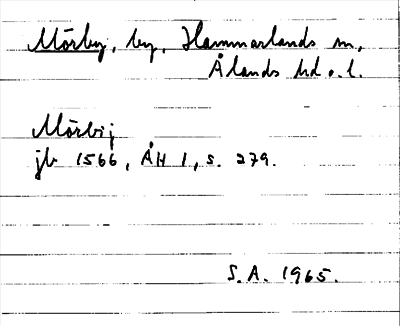 Mörby, by, Hammarlands sn,
Ålands hd o. l.
Mörbij
jb 1566, ÅH 1, s. 279.
S.A. 1965.